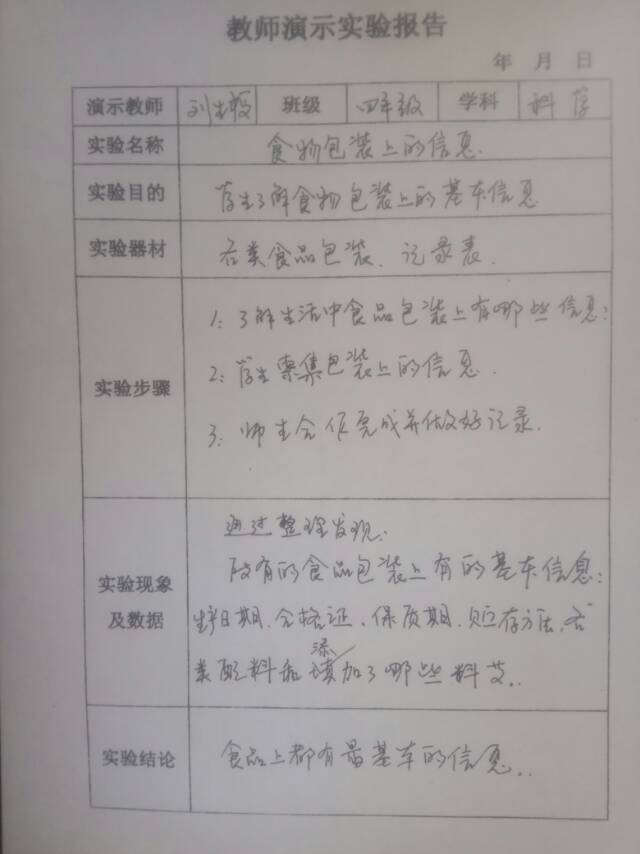 教师演示实验报告
年 月 日
演示教师 刘生 班级 四年级 学科 科学
实验名称 食物包装上的信息.
实验目的 学生了解食物包装上的基本信息
实验器材 各类食品包装、记录表.
1: 了解生活中食品包装上有哪些信息:
实验步骤 2: 学生索集包装上的信息.
3: 师生合作完成并做好记录.
通过整理发现:
实验现象 所有的食品包装上有的基本信息:
及数据 生产日期、合格证、保质期、贮存方法、各
添
类配料和填加了哪些料
实验结论 食品上都有最基本的信息..